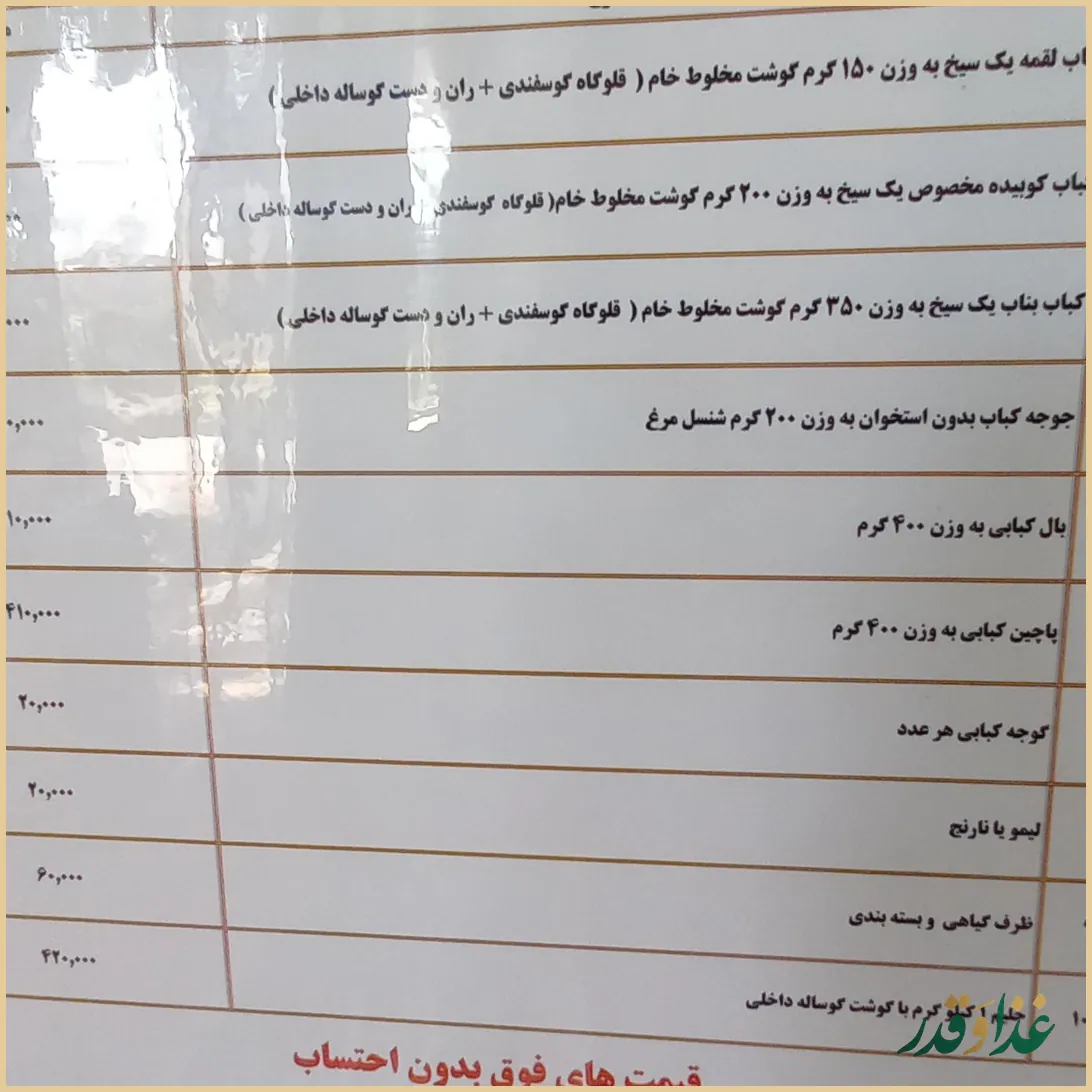 لقمه یک سیخ به وزن ۱۵۰ گرم گوشت مخلوط خام ( قلوگاه گوسفندی + ران و دست گوساله داخلی )
کوبیده مخصوص یک سیخ به وزن ۲۰۰ گرم گوشت مخلوط خام( قلوگاه گوسفندی + ران و دست گوساله داخلی )
کباب بناب یک سیخ به وزن ۳۵۰ گرم گوشت مخلوط خام ( قلوگاه گوسفندی + ران و دست گوساله داخلی )
جوجه کباب بدون استخوان به وزن ۲۰۰ گرم شنسل مرغ
بال کبابی به وزن ۴۰۰ گرم
پاچین کبابی به وزن ۴۰۰ گرم ۴۱۰,۰۰۰
گوجه کبابی هر عدد ۲۰,۰۰۰
لیمو یا نارنج ۲۰,۰۰۰
ظرف گیاهی و بسته بندی ۶۰,۰۰۰
حلیم ۱ کیلو گرم با گوشت گوساله داخلی ۴۲۰,۰۰۰
قیمت های فوق بدون احتساب
غذا و قدر